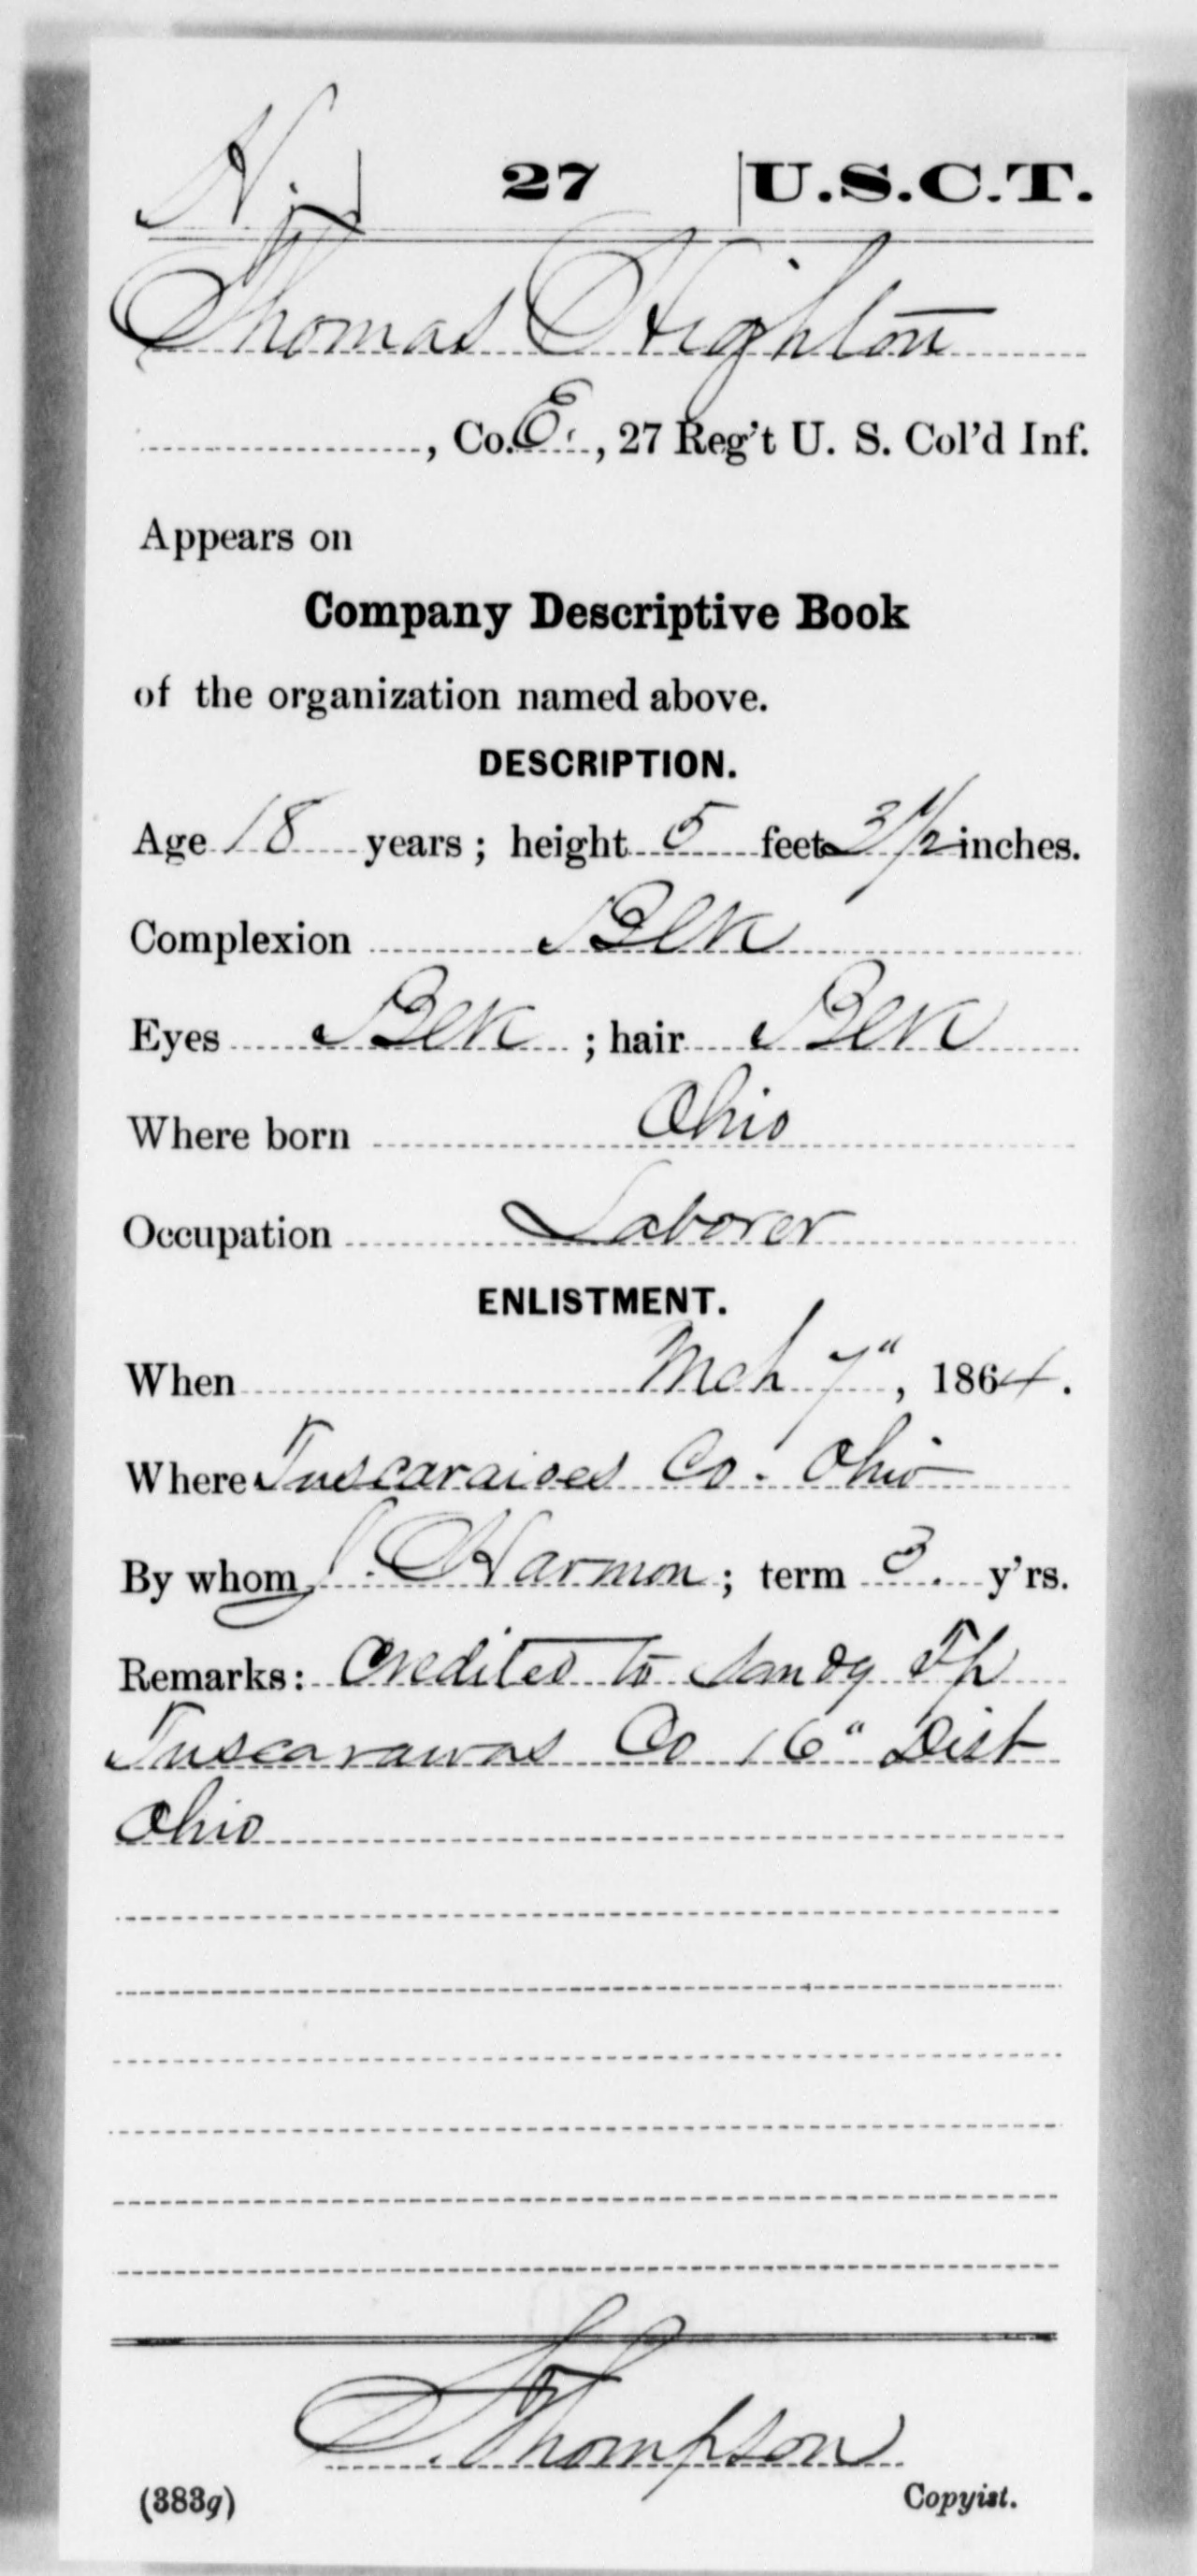 H. | 27 | U.S.C.T.
Thomas Highton
, Co. E., 27 Reg't U. S. Col'd Inf.
Appears on
Company Descriptive Book
of the organization named above.
DESCRIPTION.
Age 18 years; height 5 feet 3 1/2 inches.
Complexion Blk
Eyes Blk; hair Blk
Where born Ohio
Occupation Laborer
ENLISTMENT.
When Mch 7", 1864.
Where Tuscaraioes Co. Ohio
By whom J. Harmon; term 3 y'rs.
Remarks: Credited to Sandy Tp
Tuscarawas Co 16" Dist
Ohio
Thompson
(383g) Copyist.